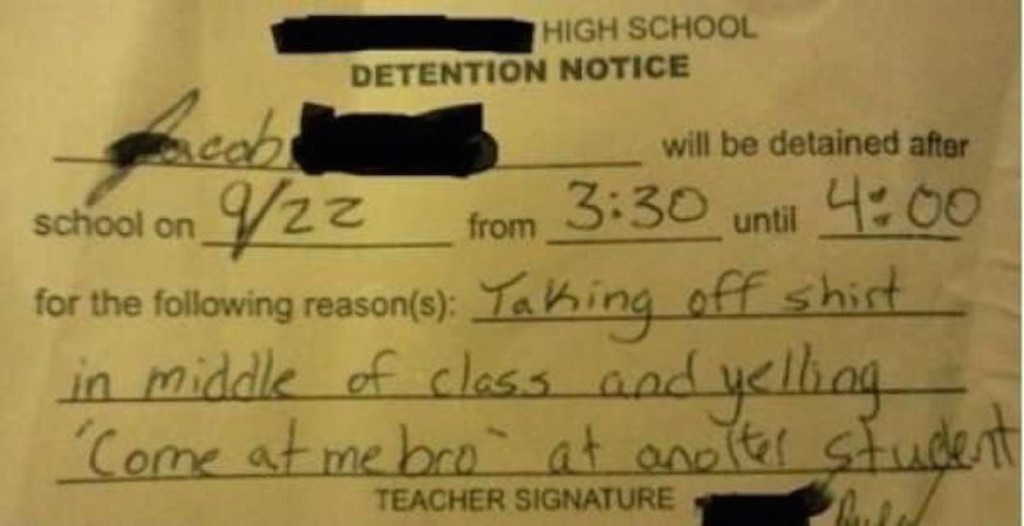 HIGH SCHOOL
DETENTION NOTICE
Jacob will be detained after
school on 9/22 from 3:30 until 4:00
for the following reason(s): Taking off shirt
in middle of class and yelling
"Come at me bro" at another student
TEACHER SIGNATURE